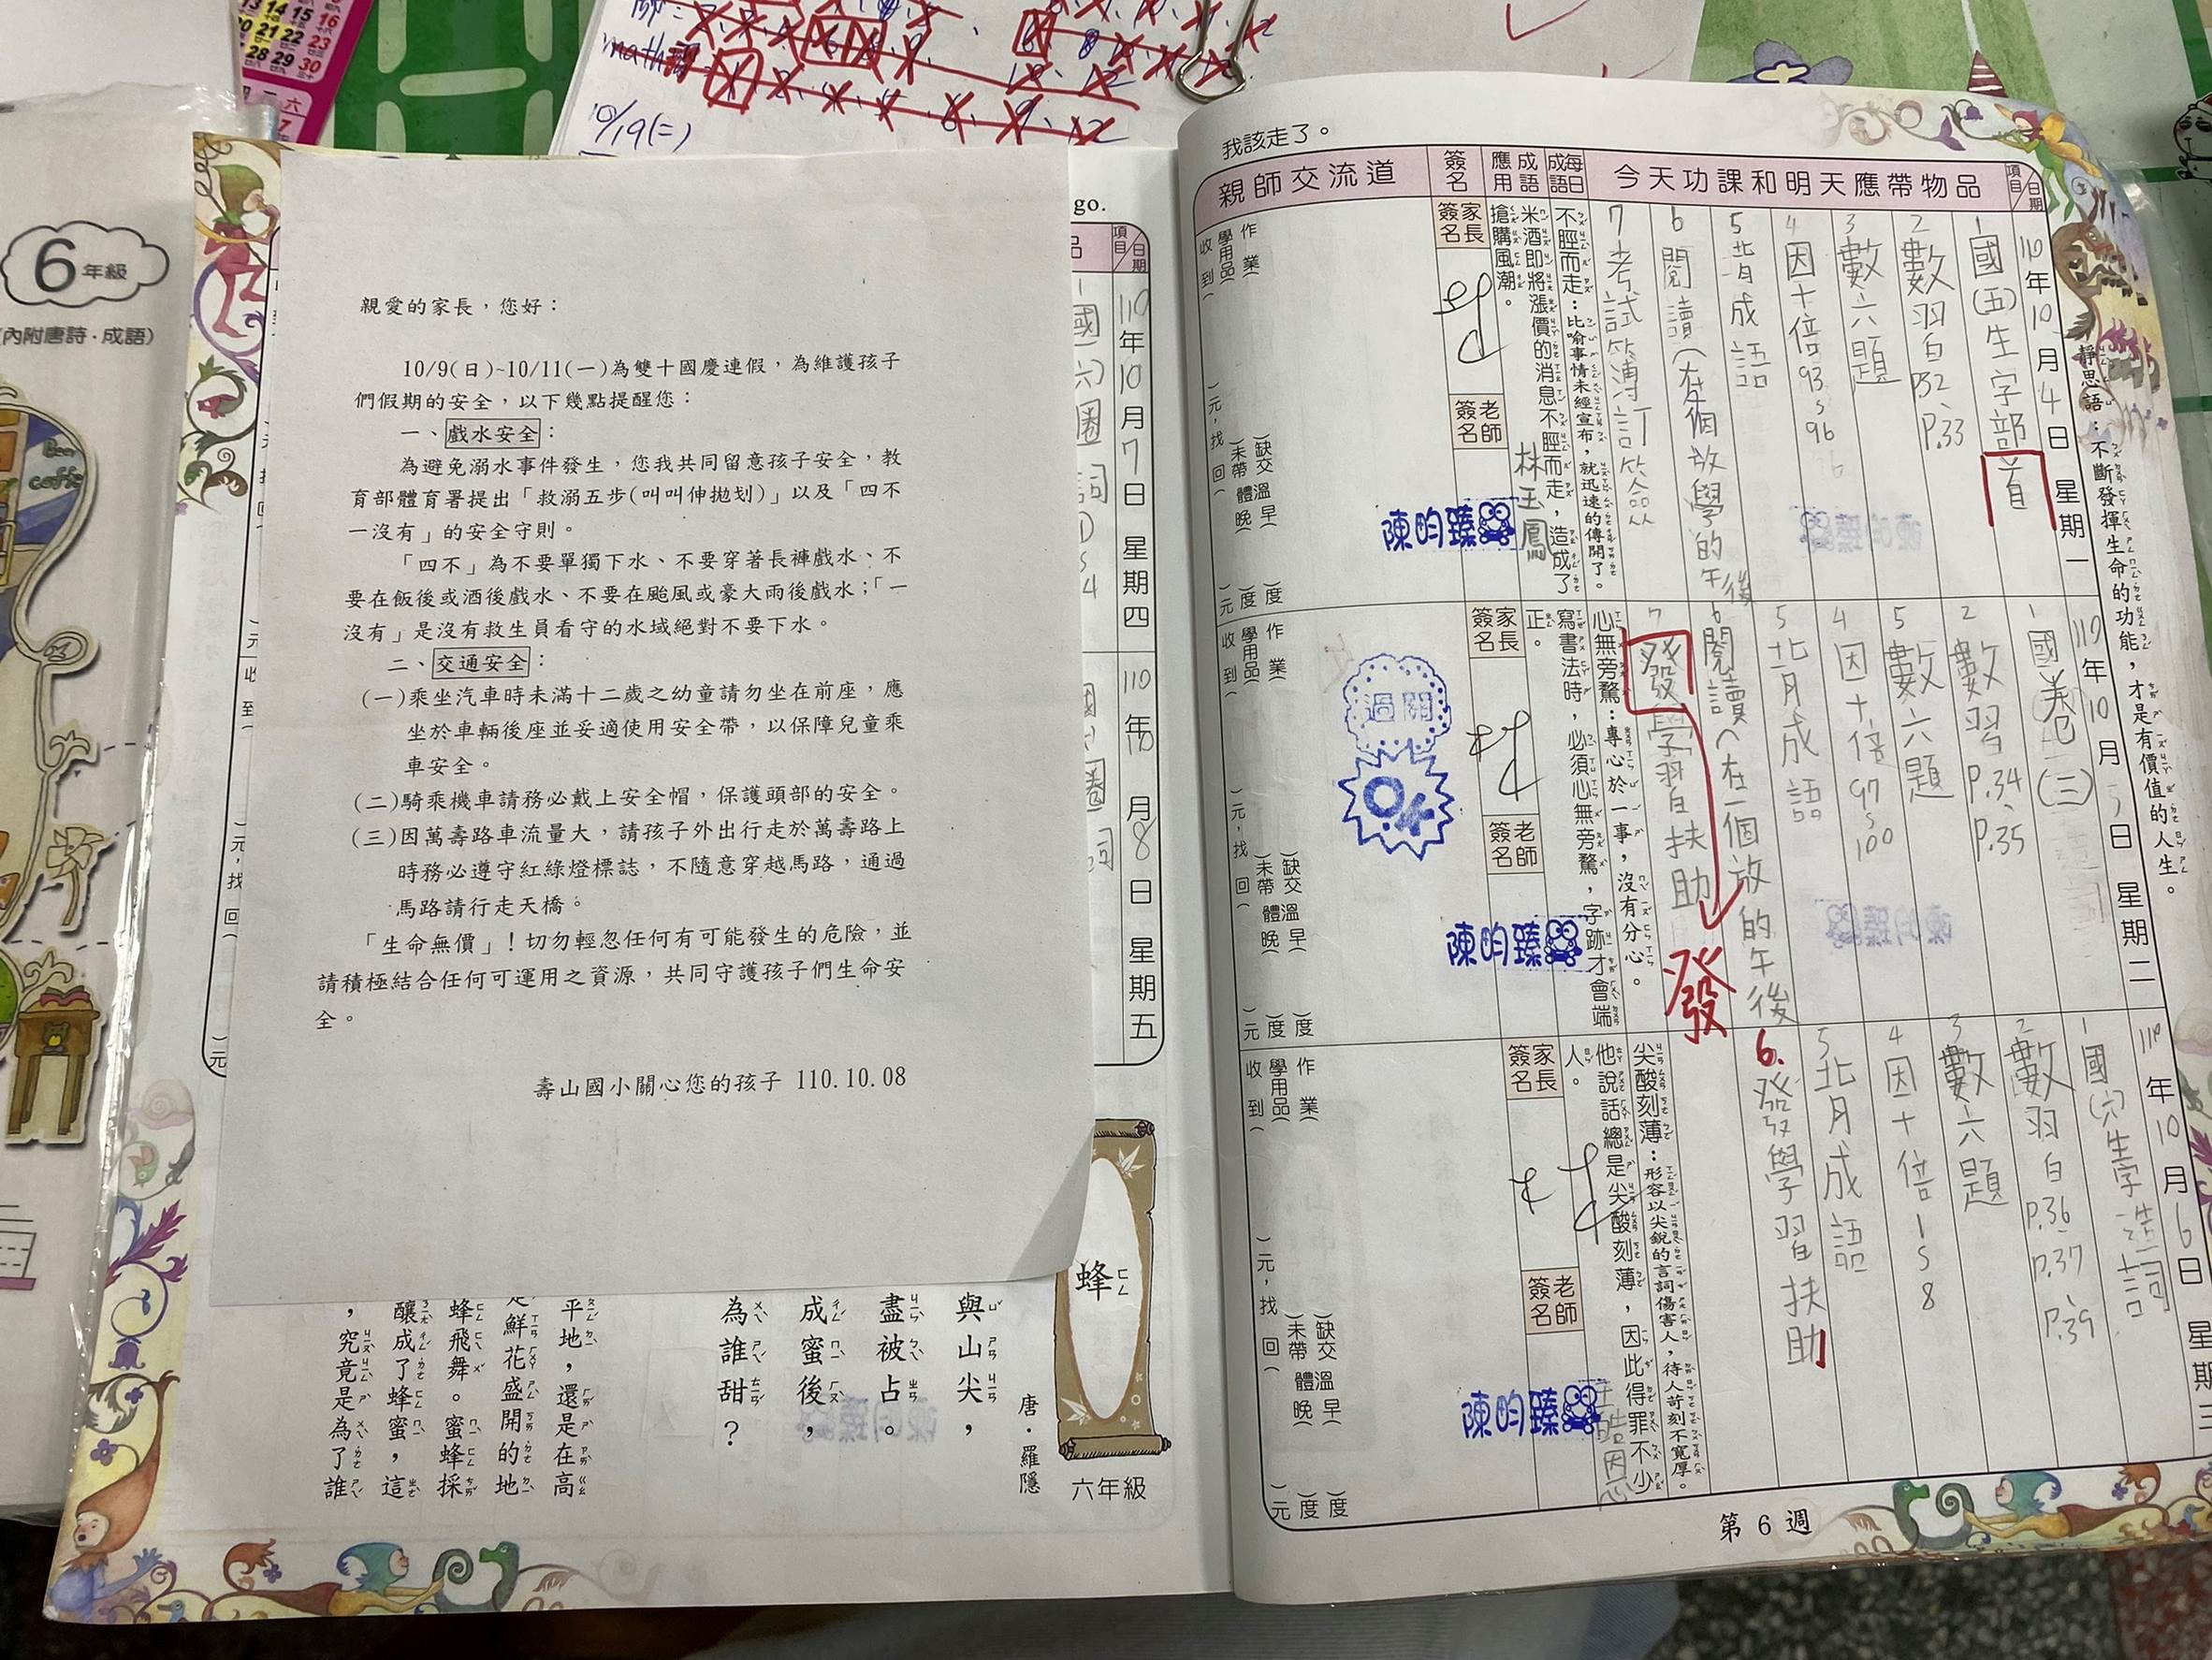 10/19(二)
6年級
(內附唐詩·成語)
go.
親愛的家長，您好：
10/9(日)~10/11(一)為雙十國慶連假，為維護孩子
們假期的安全，以下幾點提醒您：
一、戲水安全：
為避免溺水事件發生，您我共同留意孩子安全，教
育部體育署提出「救溺五步(叫叫伸拋划)」以及「四不
一沒有」的安全守則。
「四不」為不要單獨下水、不要穿著長褲戲水、不
要在飯後或酒後戲水、不要在颱風或豪大雨後戲水；「一
沒有」是沒有救生員看守的水域絕對不要下水。
二、交通安全：
(一)乘坐汽車時未滿十二歲之幼童請勿坐在前座，應
坐於車輛後座並妥適使用安全帶，以保障兒童乘
車安全。
(二)騎乘機車請務必戴上安全帽，保護頭部的安全。
(三)因萬壽路車流量大，請孩子外出行走於萬壽路上
時務必遵守紅綠燈標誌，不隨意穿越馬路，通過
馬路請行走天橋。
「生命無價」！切勿輕忽任何有可能發生的危險，並
請積極結合任何可運用之資源，共同守護孩子們生命安
全。
壽山國小關心您的孩子 110.10.08
項目/日期
110年10月7日 星期四
110年10月8日 星期五
蜂
六年級
唐·羅隱
與山尖，
盡被占。
成蜜後，
為誰甜？
平地，還是在高
是鮮花盛開的地
蜂飛舞。蜜蜂採
釀成了蜂蜜，這
，究竟是為了誰
我該走了。
靜思語：不斷發揮生命的功能，才是有價值的人生。
項目/日期
今天功課和明天應帶物品
每日成語
成語應用
簽名
親師交流道
110年10月4日 星期一
1國(五)生字部首
2數習白P.32、P.33
3數六題
4因十倍93~96
5背成語
6閱讀(在一個放學的午後
7考試簿訂正簽名
不脛而走：比喻事情未經宣布，就迅速的傳開了。
米酒即將漲價的消息不脛而走，造成了
搶購風潮。
家長簽名
老師簽名
陳昀臻
林玉鳳
作業(　)缺交
學用品(　)未帶
體溫 早(　)度
晚(　)度
收到(　)元，找回(　)元
110年10月5日 星期二
1國卷(三)
2數習P.34、P.35
數六題
4因十倍97~100
5背成語
6閱讀(在一個放的午後
7發學習白扶助
發
心無旁騖：專心於一事，沒有分心。
寫書法時，必須心無旁騖，字跡才會端
正。
家長簽名
老師簽名
陳昀臻
過關
OK
作業(　)缺交
學用品(　)未帶
體溫 早(　)度
晚(　)度
收到(　)元，找回(　)元
110年10月6日 星期三
1國(六)生字造詞
2數習白P.36、P.37、P.39
3數六題
4因十倍1~8
5背成語
6.發學習扶助
尖酸刻薄：形容以尖銳的言詞傷害人，待人苛刻不寬厚。
他說話總是尖酸刻薄，因此得罪不少
人。
家長簽名
老師簽名
陳昀臻
作業(　)缺交
學用品(　)未帶
體溫 早(　)度
晚(　)度
收到(　)元，找回(　)元
第6週